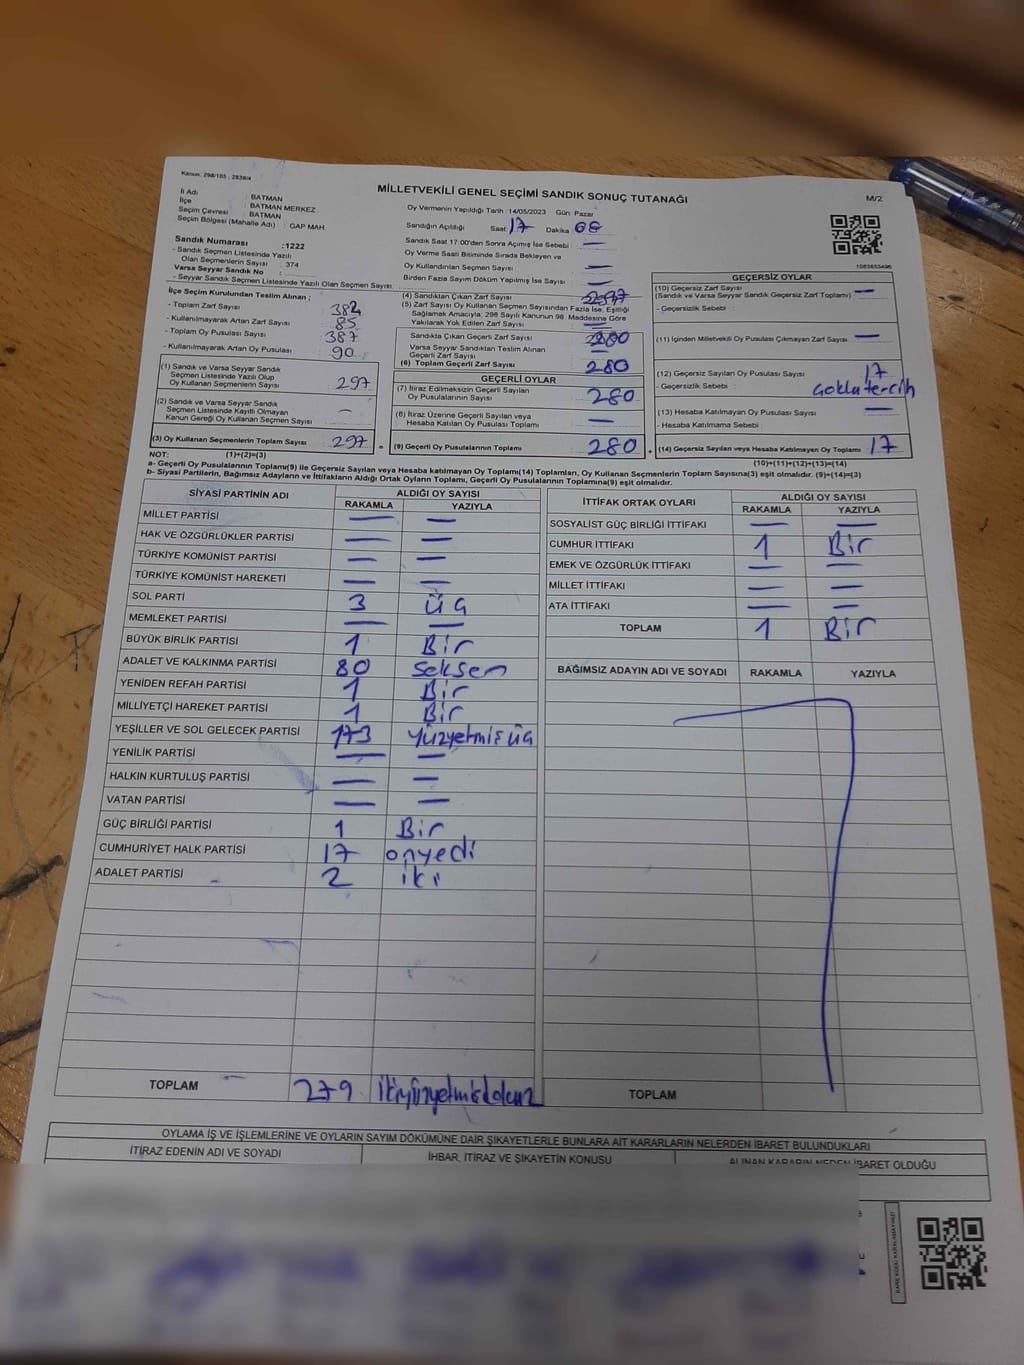 Kanun: 298/105 , 2839/4
MİLLETVEKİLİ GENEL SEÇİMİ SANDIK SONUÇ TUTANAĞI
M/2
İl Adı : BATMAN
İlçe : BATMAN MERKEZ
Seçim Çevresi : BATMAN
Seçim Bölgesi (Mahalle Adı) : GAP MAH.
Sandık Numarası :1222
- Sandık Seçmen Listesinde Yazılı
Olan Seçmenlerin Sayısı : 374
Varsa Seyyar Sandık No :
- Seyyar Sandık Seçmen Listesinde Yazılı Olan Seçmen Sayısı
Oy Vermenin Yapıldığı Tarih :14/05/2023 Gün: Pazar
Sandığın Açıldığı Saat: 17 Dakika: 08
Sandık Saat 17:00'den Sonra Açımış İse Sebebi : —
Oy Verme Saati Bitiminde Sırada Bekleyen ve
Oy Kullandırılan Seçmen Sayısı : —
Birden Fazla Sayım Döküm Yapılmış İse Sayısı : —
İlçe Seçim Kurulundan Teslim Alınan ;
- Toplam Zarf Sayısı : 382
- Kullanılmayarak Artan Zarf Sayısı : 85
- Toplam Oy Pusulası Sayısı : 387
- Kullanılmayarak Artan Oy Pusulası : 90
(1) Sandık ve Varsa Seyyar Sandık
Seçmen Listesinde Yazılı Olup
Oy Kullanan Seçmenlerin Sayısı : 297
(2) Sandık ve Varsa Seyyar Sandık
Seçmen Listesinde Kayıtlı Olmayan
Kanun Gereği Oy Kullanan Seçmen Sayısı : —
(3) Oy Kullanan Seçmenlerin Toplam Sayısı : 297
(4) Sandıktan Çıkan Zarf Sayısı : 297
(5) Zarf Sayısı Oy Kullanan Seçmen Sayısından Fazla İse, Eşitliği
Sağlamak Amacıyla, 298 Sayılı Kanunun 98. Maddesine Göre
Yakılarak Yok Edilen Zarf Sayısı : —
Sandıkta Çıkan Geçerli Zarf Sayısı : 280
Varsa Seyyar Sandıktan Teslim Alınan
Geçerli Zarf Sayısı : —
(6) Toplam Geçerli Zarf Sayısı : 280
GEÇERLİ OYLAR
(7) İtiraz Edilmeksizin Geçerli Sayılan
Oy Pusulalarının Sayısı : 280
(8) İtiraz Üzerine Geçerli Sayılan veya
Hesaba Katılan Oy Pusulası Toplamı : —
= (9) Geçerli Oy Pusulalarının Toplamı : 280
1083653496
GEÇERSİZ OYLAR
(10) Geçersiz Zarf Sayısı
(Sandık ve Varsa Seyyar Sandık Geçersiz Zarf Toplamı) : —
- Geçersizlik Sebebi :
(11) İçinden Milletvekili Oy Pusulası Çıkmayan Zarf Sayısı : —
(12) Geçersiz Sayılan Oy Pusulası Sayısı : 17
- Geçersizlik Sebebi : Çoklu tercih
(13) Hesaba Katılmayan Oy Pusulası Sayısı : —
- Hesaba Katılmama Sebebi :
+ (14) Geçersiz Sayılan veya Hesaba Katılmayan Oy Toplamı : 17
NOT: (1)+(2)=(3) (10)+(11)+(12)+(13)=(14)
a- Geçerli Oy Pusulalarının Toplamı(9) ile Geçersiz Sayılan veya Hesaba katılmayan Oy Toplamı(14) Toplamları, Oy Kullanan Seçmenlerin Toplam Sayısına(3) eşit olmalıdır. (9)+(14)=(3)
b- Siyasi Partilerin, Bağımsız Adayların ve İttifakların Aldığı Ortak Oyların Toplamı, Geçerli Oy Pusulalarının Toplamına(9) eşit olmalıdır.
SİYASİ PARTİNİN ADI ALDIĞI OY SAYISI
RAKAMLA YAZIYLA
MİLLET PARTİSİ — —
HAK VE ÖZGÜRLÜKLER PARTİSİ — —
TÜRKİYE KOMÜNİST PARTİSİ — —
TÜRKİYE KOMÜNİST HAREKETİ — —
SOL PARTİ 3 üç
MEMLEKET PARTİSİ — —
BÜYÜK BİRLİK PARTİSİ 1 Bir
ADALET VE KALKINMA PARTİSİ 80 Seksen
YENİDEN REFAH PARTİSİ 1 Bir
MİLLİYETÇİ HAREKET PARTİSİ 1 Bir
YEŞİLLER VE SOL GELECEK PARTİSİ 173 Yüzyetmişüç
YENİLİK PARTİSİ — —
HALKIN KURTULUŞ PARTİSİ — —
VATAN PARTİSİ — —
GÜÇ BİRLİĞİ PARTİSİ 1 Bir
CUMHURİYET HALK PARTİSİ 17 onyedi
ADALET PARTİSİ 2 iki
TOPLAM 279
İTTİFAK ORTAK OYLARI ALDIĞI OY SAYISI
RAKAMLA YAZIYLA
SOSYALİST GÜÇ BİRLİĞİ İTTİFAKI — —
CUMHUR İTTİFAKI 1 Bir
EMEK VE ÖZGÜRLÜK İTTİFAKI — —
MİLLET İTTİFAKI — —
ATA İTTİFAKI — —
TOPLAM 1 Bir
BAĞIMSIZ ADAYIN ADI VE SOYADI RAKAMLA YAZIYLA
TOPLAM
OYLAMA İŞ VE İŞLEMLERİNE VE OYLARIN SAYIM DÖKÜMÜNE DAİR ŞİKAYETLERLE BUNLARA AİT KARARLARIN NELERDEN İBARET BULUNDUKLARI
İTİRAZ EDENİN ADI VE SOYADI İHBAR, İTİRAZ VE ŞİKAYETİN KONUSU ALINAN KARARIN NEDEN İBARET OLDUĞU